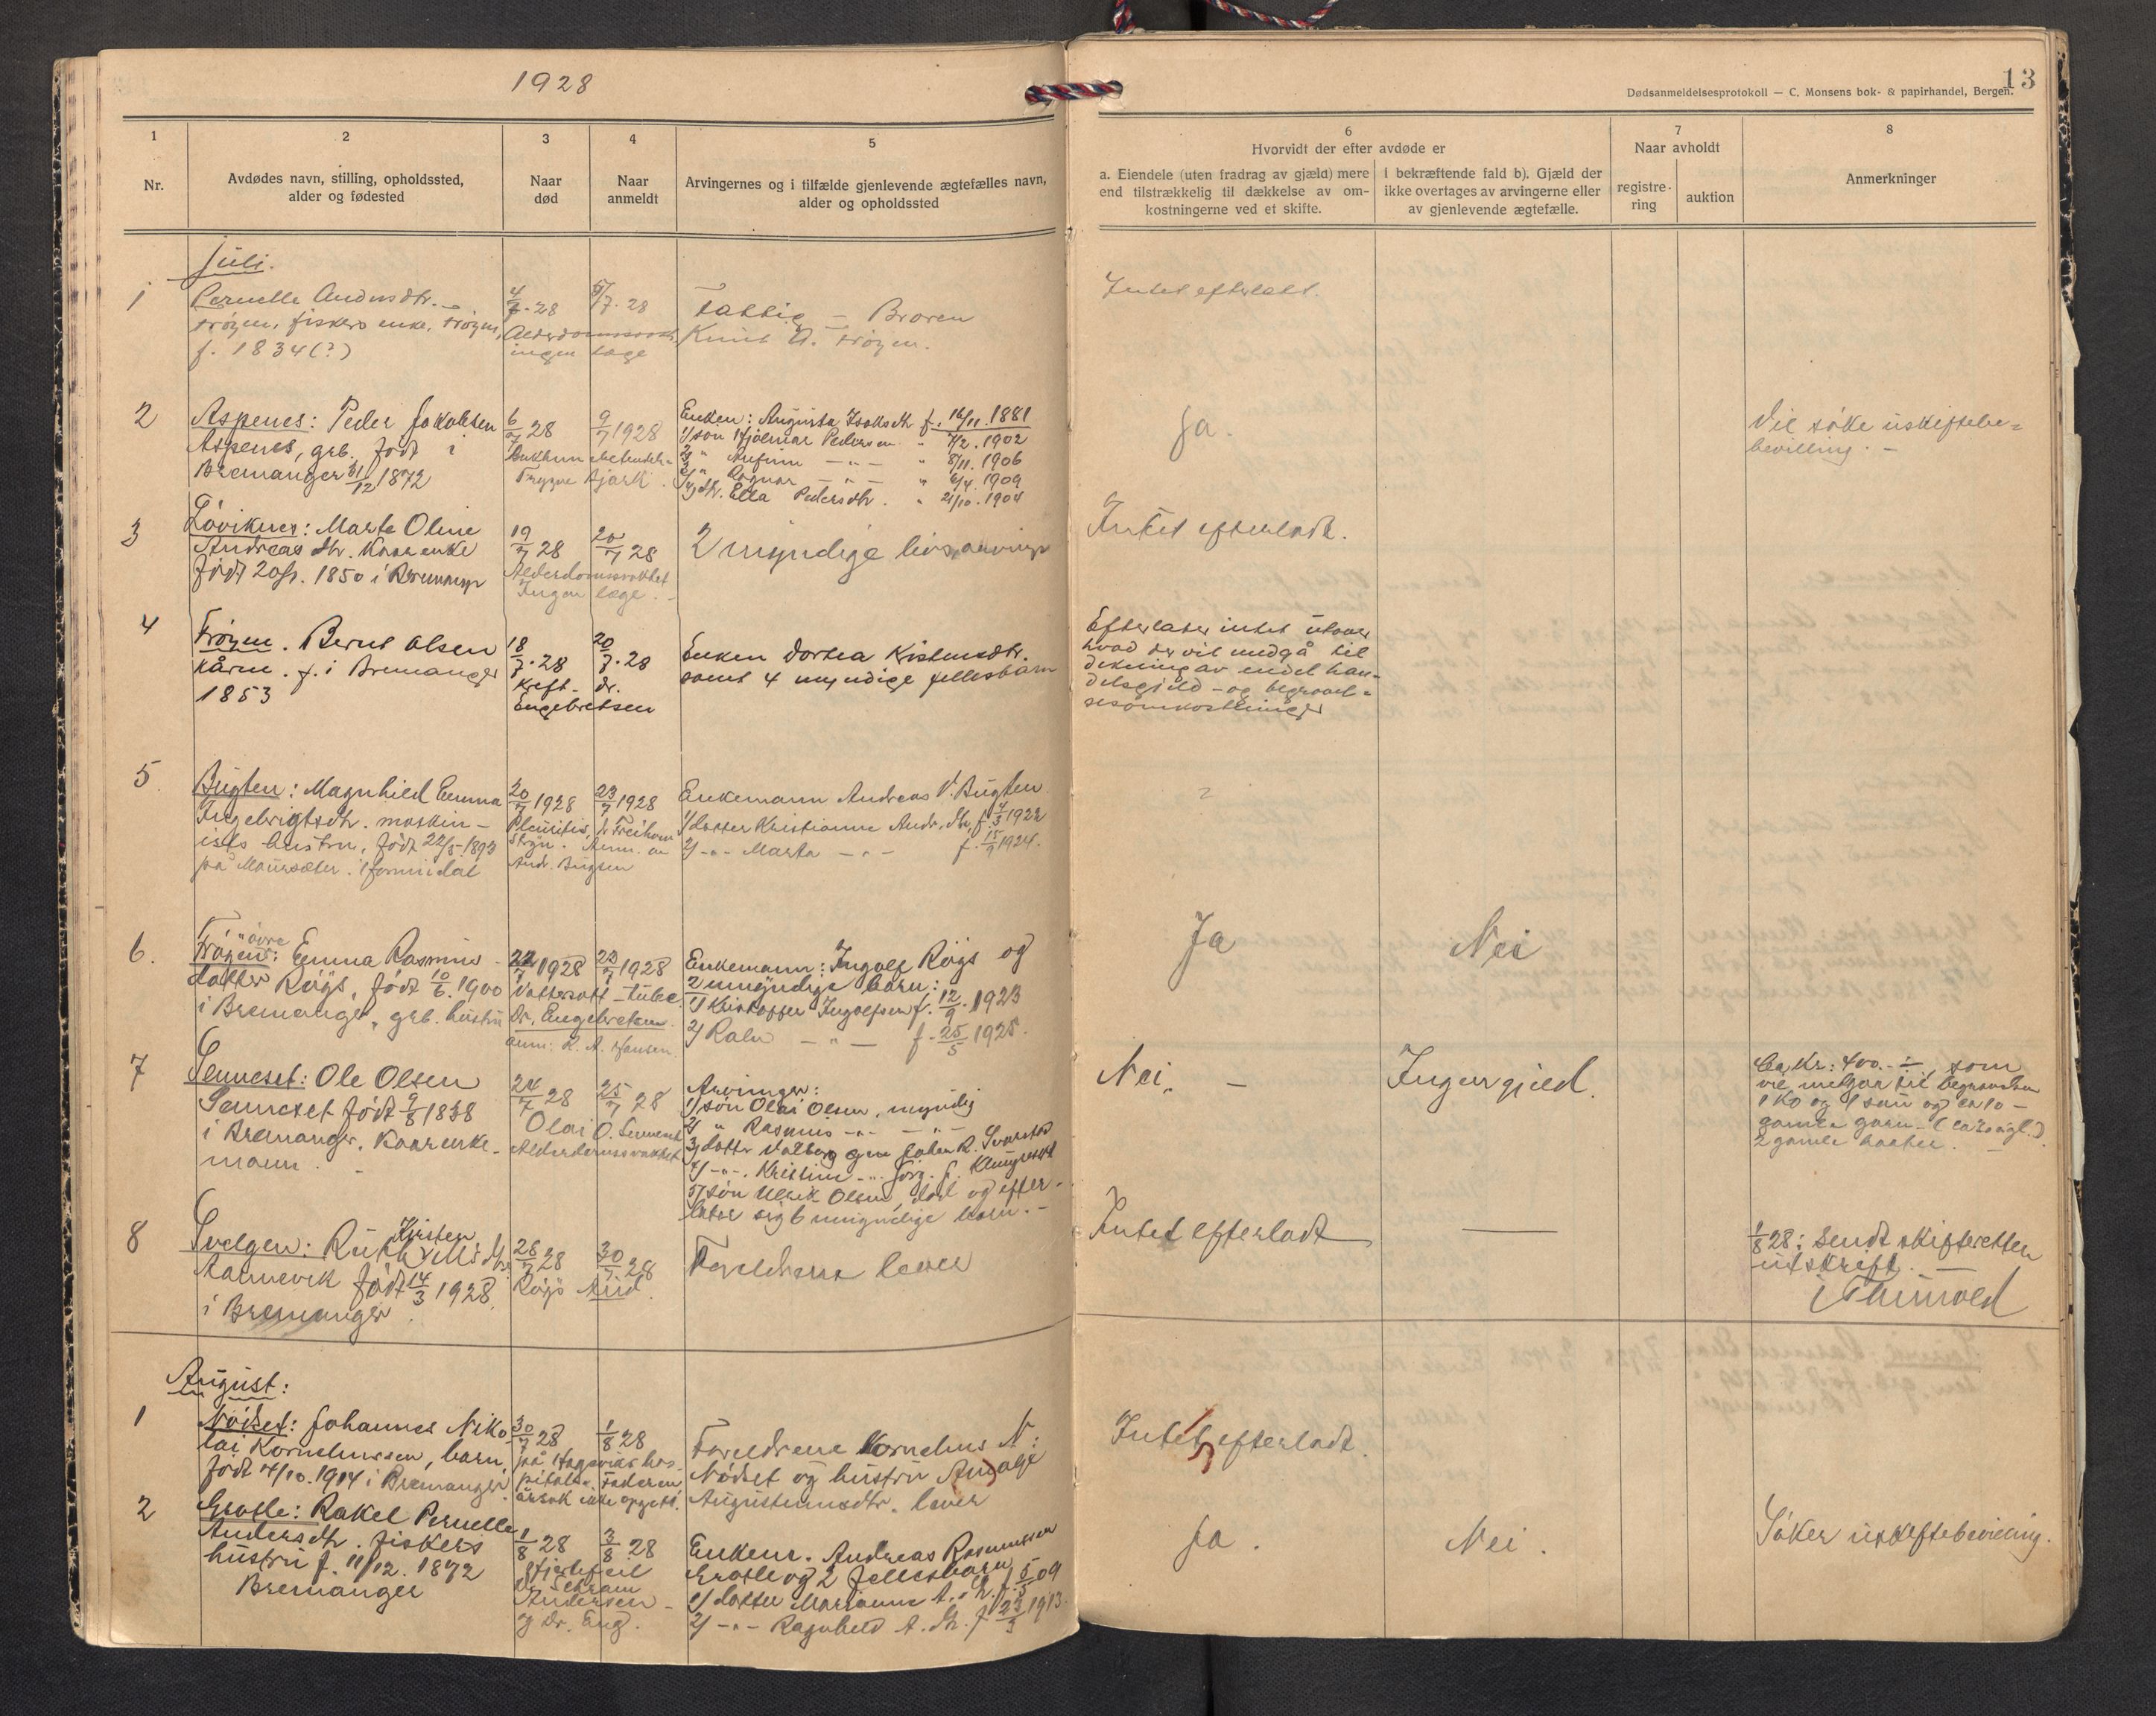 1928
13
Dødsanmeldelsesprotokoll — C. Monsens bok- & papirhandel, Bergen.
1
Nr.
2
Avdødes navn, stilling, opholdssted,
alder og fødested
3
Naar
død
4
Naar
anmeldt
5
Arvingernes og i tilfælde gjenlevende ægtefælles navn,
alder og opholdssted
6
Hvorvidt der efter avdøde er
a. Eiendele (uten fradrag av gjæld) mere
end tilstrækkelig til dækkelse av om-
kostningerne ved et skifte.
I bekræftende fald b). Gjæld der
ikke overtages av arvingerne eller
av gjenlevende ægtefælle.
7
Naar avholdt
registre-
ring
auktion
8
Anmerkninger
Juli.
1
Pernelle Andersdtr.
Frøyen, fiskers enke, Frøyen,
f. 1834(?)
4/7.28
5/7.28
ingen læge
Fattig — Broren
Knut A. Frøyen.
Intet efterlatt.
2
Aspenes: Peder Jakobsen
Aspenes, grb. født i
Bremanger 31/12 1872
6/7 28
9/7 1928
Enken: Augusta Isaksdtr f. 16/11.1881
1/ søn Hjalmar Pedersen " 7/2.1902
2/ " Anfinn —"— " 8/11.1906
3/ " Ragnar —"— " 6/4.1909
4/ dtr. Ella Pedersdtr. " 21/10.1904
Ja.
Vil søke uskiftebe=
bevilling. —
3
Løviknes: Marte Oline
Andreasdtr. Kaarenke
født 20/9. 1850 i Bremanger
19/7 28
20/7 28
Alderdomssvakhet
Ingen læge. -
2 myndige livsarvinger
Intet efterladt.
4
Frøyen. Bernt Olsen
kårm. f. i Bremanger
1853
18/7.28
20/7.28
Kreft - dr.
Engebretsen
Enken Dortea Kristensdtr.
samt 4 myndige fellesbarn
Efterlater intet utover
hvad der vil medgå til
dekning av endel han-
delsgjeld - og begravel=
sesomkostninger
5
Bugten: Magnhild Emma
Ingebrigtsdtr. maskin-
ists hustru, født 22/5-1893
på Maursæter. i Hornindal
20/7 1928
23/7 1928
Pleuritis,
Stryn. Anm. av
Andr. Bugten
Enkemann Andreas V. Bugten
1/ datter Kristianne Andr.dtr, f. 4/3 1922
2/ -"- Marta -"- f. 15/9 1924.
?
6.
Frøyen: øvre Emma Rasmus-
datter Røys, født 10/6.1900
i Bremanger, grb. hustru
22/7 1928
23/7 1928
Dr. Engebretsen.
anm: K. A. Hansen.
Enkemann: Ingolf Røys og
2 umyndige barn:
1/ Kristoffer Ingolfsen f. 12/9.1923
2/ —"— f. 25/5 1925.
Ja
Nei
7
Senneset: Ole Olsen
Senneset født 9/8 1838
i Bremanger. Kaarenke-
mann. -
24/7 28
25/7 28
Olai O. Senneset
Alderdomssvakhet
Arvinger:
1/ søn Olai Olsen, myndig
2/ " Rasmus -"- -"-
3/ datter Valborg gm Jakob R. Svarstad
4/ -"- Kristine -"- Jørg. J. Klungreset
5/ søn Ulrik Olsen, død og efter-
later sig 6 umyndige barn. -
Nei. —
Ingen gjæld.
Ca Kr: 400.-÷, som
vil medgaa til begravelsen
1 ko og 1 sau og ca 10 -
gamle garn -
2 gamle baater. —
8
Svelgen: Ruth Kirsten
Aarnevik født 14/3 1928,
i Bremanger.
28/7 28
30/7 28
Foreldrene lever
Intet efterladt
1/8 28: Sendt skifteretten
utskrift. —
August:
1
Nødset: Johannes Niko-
lai Korneliussen, barn,
født 4/10.1914 i Bremanger
30/7 28
1/8 28
på Hagevik hos-
pital. Faderen
årsak ikke opgett.
Foreldrene Kornelius N:
Nødset og hustru
Augustinusdtr. lever
Intet efterladt.
2
Grotle: Rakel Pernelle
Andersdtr. fiskers
hustru f. 11/12.1872
Bremanger
1/8 28
3/8 28
Hjertefeil
Andersen -
og Dr. Eng.
Enkem. Andreas Rasmussen
Grotle og 2 fellesbarn
1/ datter Marianne A.dtr. f 5/5 09
2/ -"- Ragnhild A. dtr. f 23/3 1913.
Ja.
Nei.
Søker uskiftebevilling.